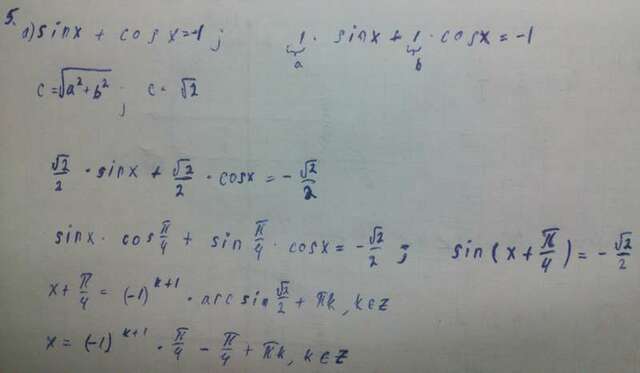 5.
а) sinx + cosx = -1 ; 1 · sinx + 1 · cosx = -1
a b
c = √a² + b² ; c = √2
√2/2 · sinx + √2/2 · cosx = - √2/2
sinx · cos π/4 + sin π/4 · cosx = - √2/2 ; sin ( x + π/4 ) = - √2/2
x + π/4 = (-1)^k+1 · arcsin √2/2 + πk, k∈Z
x = (-1)^k+1 · π/4 - π/4 + πk, k∈Z